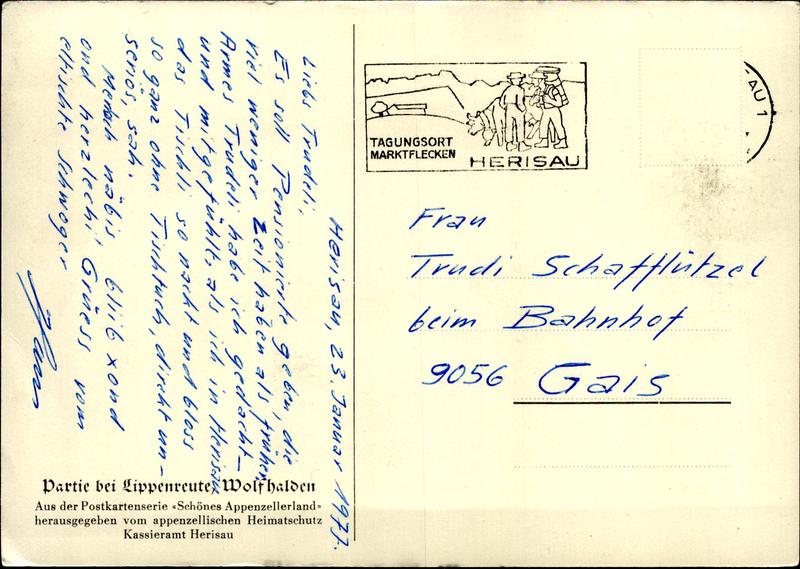 Herisau, 23. Januar 1977.
Liebs Trudeli,
Es soll Pensionierte geben, die
viel weniger Zeit haben als früher.
Armes Trudeli habe ich gedacht
und mitgefühlt, als ich in Herisau
das Tischli so nackt und bloss
so ganz ohne Tischtuch, direkt un-
seriös, sah.
Mensch näbis bliib xond
ond herzlechi Grüess vom
eltischte Schwoger
Hans
Partie bei Lippenreute, Wolfhalden
Aus der Postkartenserie «Schönes Appenzellerland»
herausgegeben vom appenzellischen Heimatschutz
Kassieramt Herisau
TAGUNGSORT
MARKTFLECKEN
HERISAU
AU 1
Frau
Trudi Schafflützel
beim Bahnhof
9056 Gais